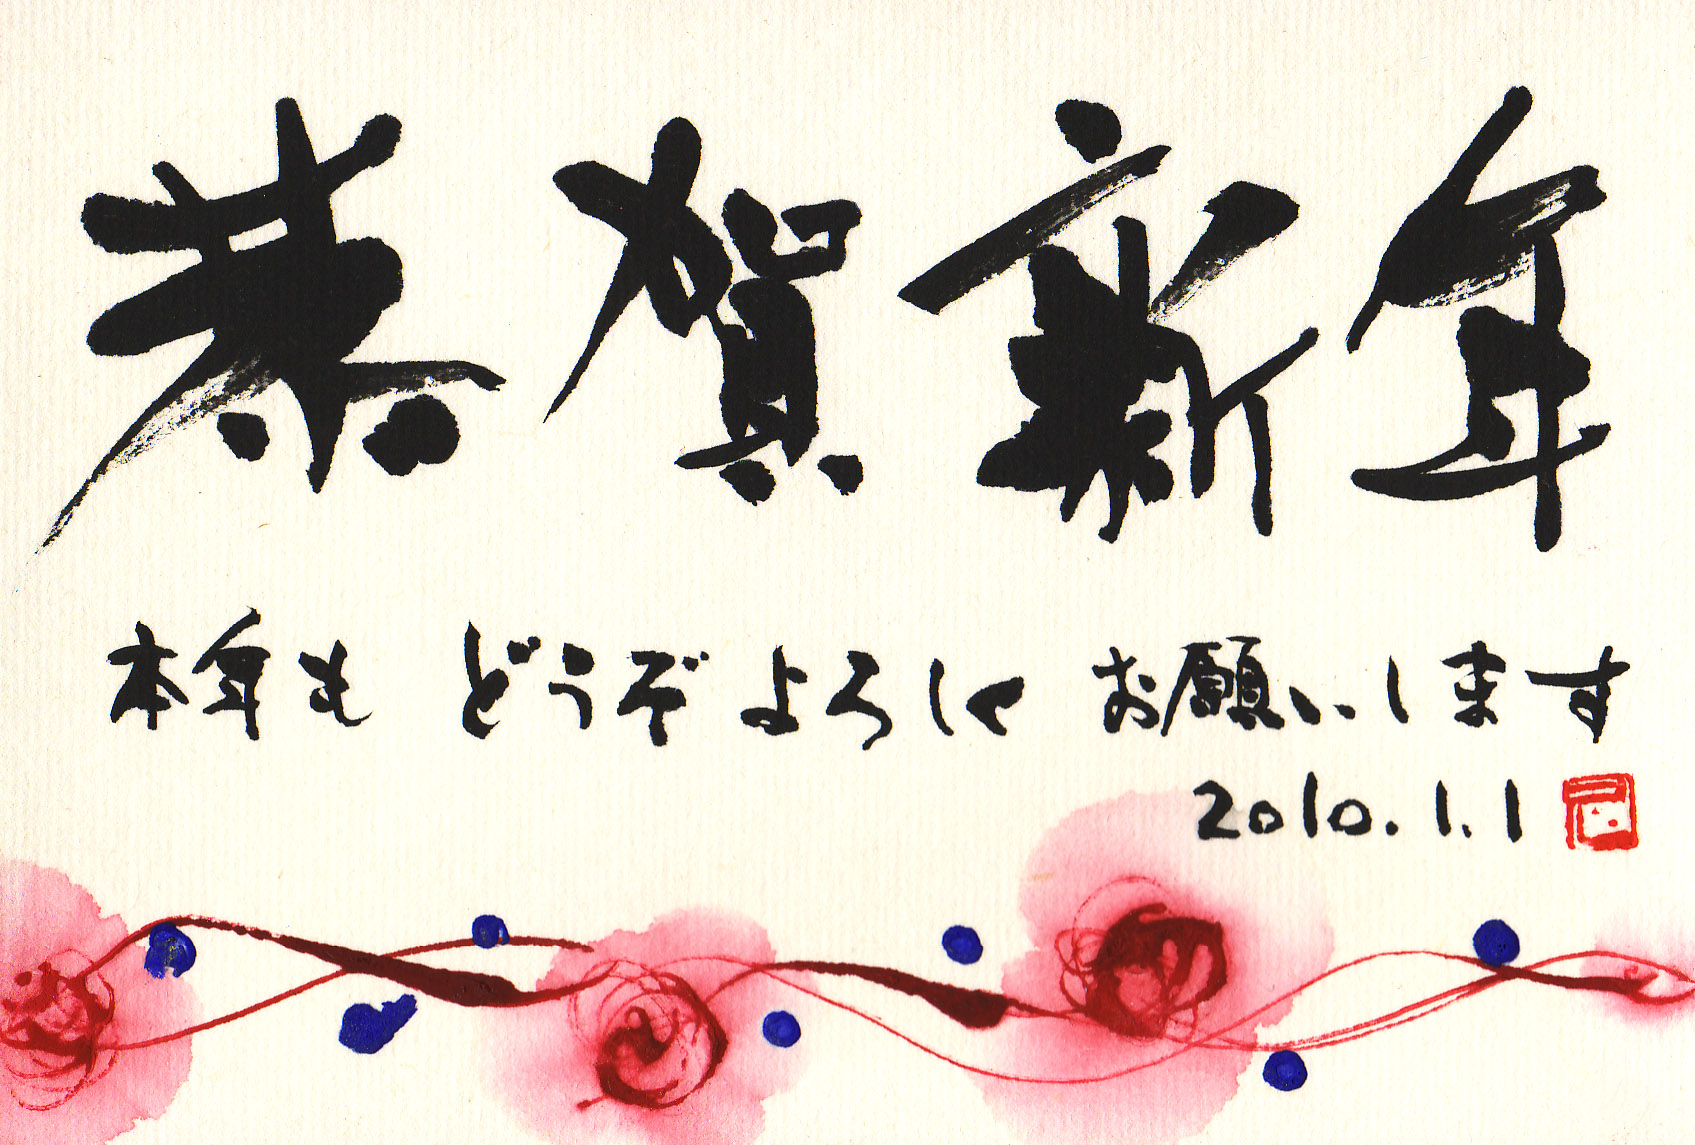 恭賀新年
本年も どうぞよろしく お願いします
2010.1.1